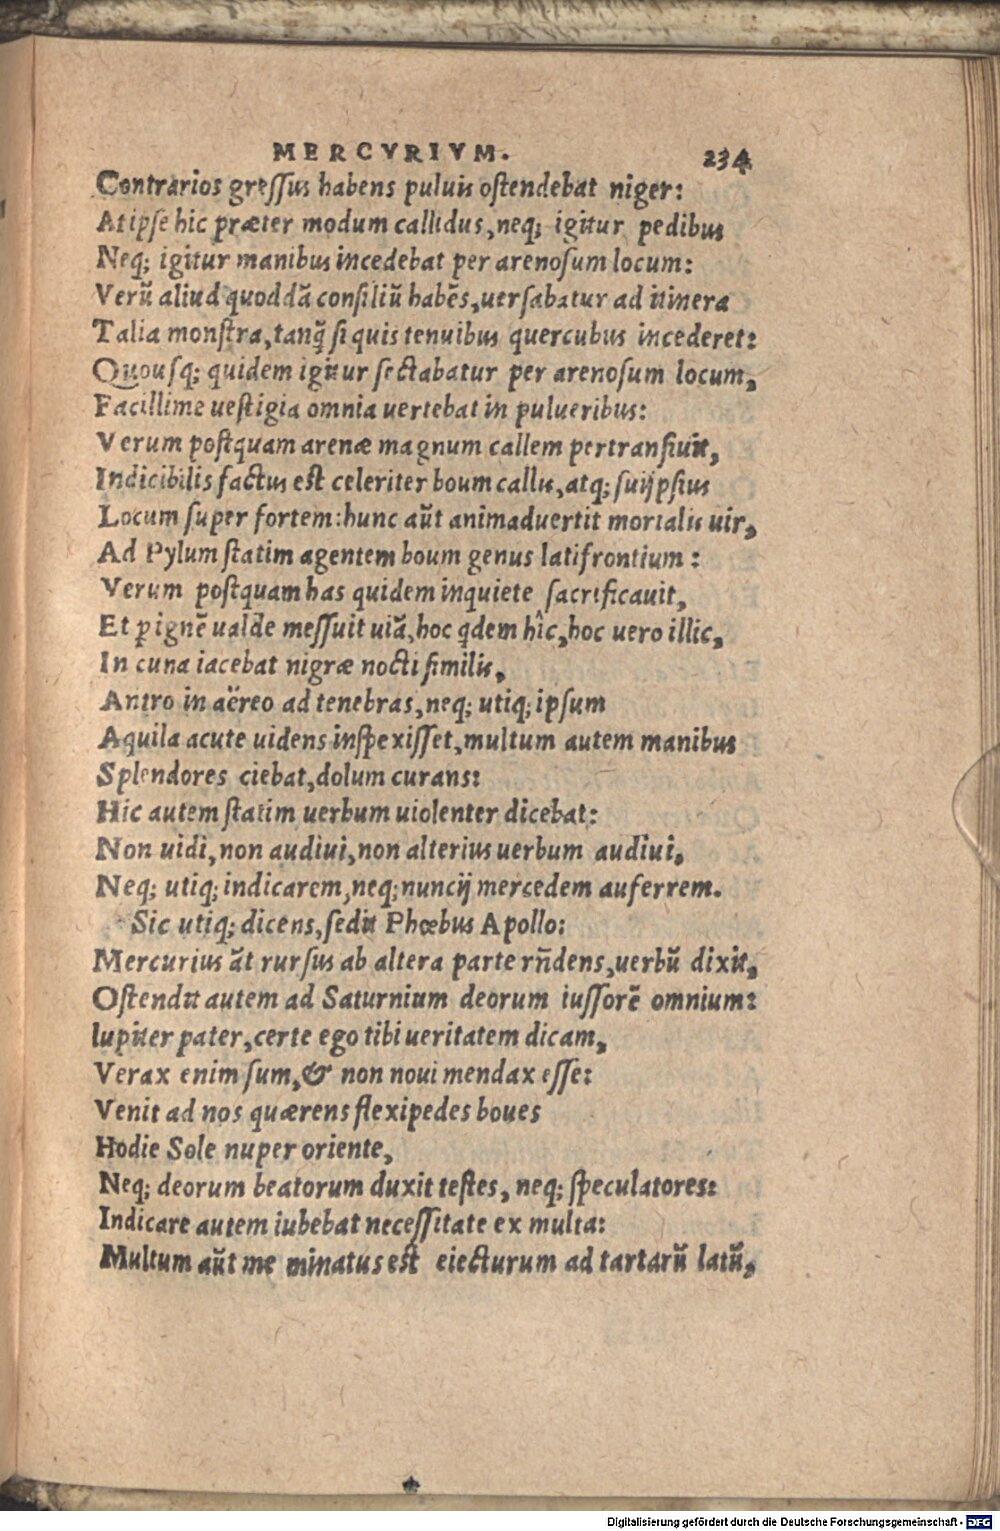 MERCVRIVM. 234
Contrarios gressus habens puluis ostendebat niger:
At ipse hic præter modum callidus, neq; igitur pedibus
Neq; igitur manibus incedebat per arenosum locum:
Verū aliud quoddā consiliū habēs, uersabatur ad itinera
Talia monstra, tanq̄ si quis tenuibus quercubus incederet:
Quousq; quidem igitur sectabatur per arenosum locum,
Facillime uestigia omnia uertebat in pulueribus:
Verum postquam arenæ magnum callem pertransiuit,
Indicibilis factus est celeriter boum callis, atq; suijpsius
Locum super fortem: hunc aūt animaduertit mortalis uir,
Ad Pylum statim agentem boum genus latifrontium:
Verum postquam has quidem inquiete sacrificauit,
Et p ignē ualde messuit uiā, hoc qdem hîc, hoc uero illic,
In cuna iacebat nigræ nocti similis,
Antro in aëreo ad tenebras, neq; utiq; ipsum
Aquila acute uidens inspexisset, multum autem manibus
Splendores ciebat, dolum curans:
Hic autem statim uerbum uiolenter dicebat:
Non uidi, non audiui, non alterius uerbum audiui,
Neq; utiq; indicarem, neq; nuncij mercedem auferrem.
Sic utiq; dicens, sedit Phœbus Apollo:
Mercurius āt rursus ab altera parte rn̄dens, uerbū dixit,
Ostendit autem ad Saturnium deorum iussorē omnium:
Iupiter pater, certe ego tibi ueritatem dicam,
Verax enim sum, & non noui mendax esse:
Venit ad nos quærens flexipedes boues
Hodie Sole nuper oriente,
Neq; deorum beatorum duxit testes, neq; speculatores:
Indicare autem iubebat necessitate ex multa:
Multum aūt me minatus est eiecturum ad tartarū latū,
Digitalisierung gefördert durch die Deutsche Forschungsgemeinschaft - DFG